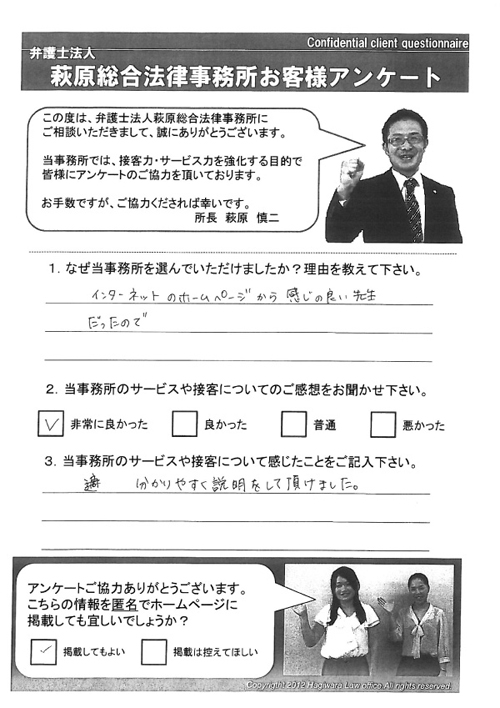 Confidential client questionnaire
弁護士法人
萩原総合法律事務所お客様アンケート
この度は、弁護士法人萩原総合法律事務所に
ご相談いただきまして、誠にありがとうございます。
当事務所では、接客力・サービス力を強化する目的で
皆様にアンケートのご協力を頂いております。
お手数ですが、ご協力くだされば幸いです。
所長 萩原 慎二
1. なぜ当事務所を選んでいただけましたか？理由を教えて下さい。
インターネットのホームページから 感じの良い先生
だったので
2. 当事務所のサービスや接客についてのご感想をお聞かせ下さい。
非常に良かった 良かった 普通 悪かった
3. 当事務所のサービスや接客について感じたことをご記入下さい。
分かりやすく説明をして頂けました。
アンケートご協力ありがとうございます。
こちらの情報を匿名でホームページに
掲載しても宜しいでしょうか？
掲載してもよい 掲載は控えてほしい
Copyright 2012 Hagiwara Law office.All rights reserved.